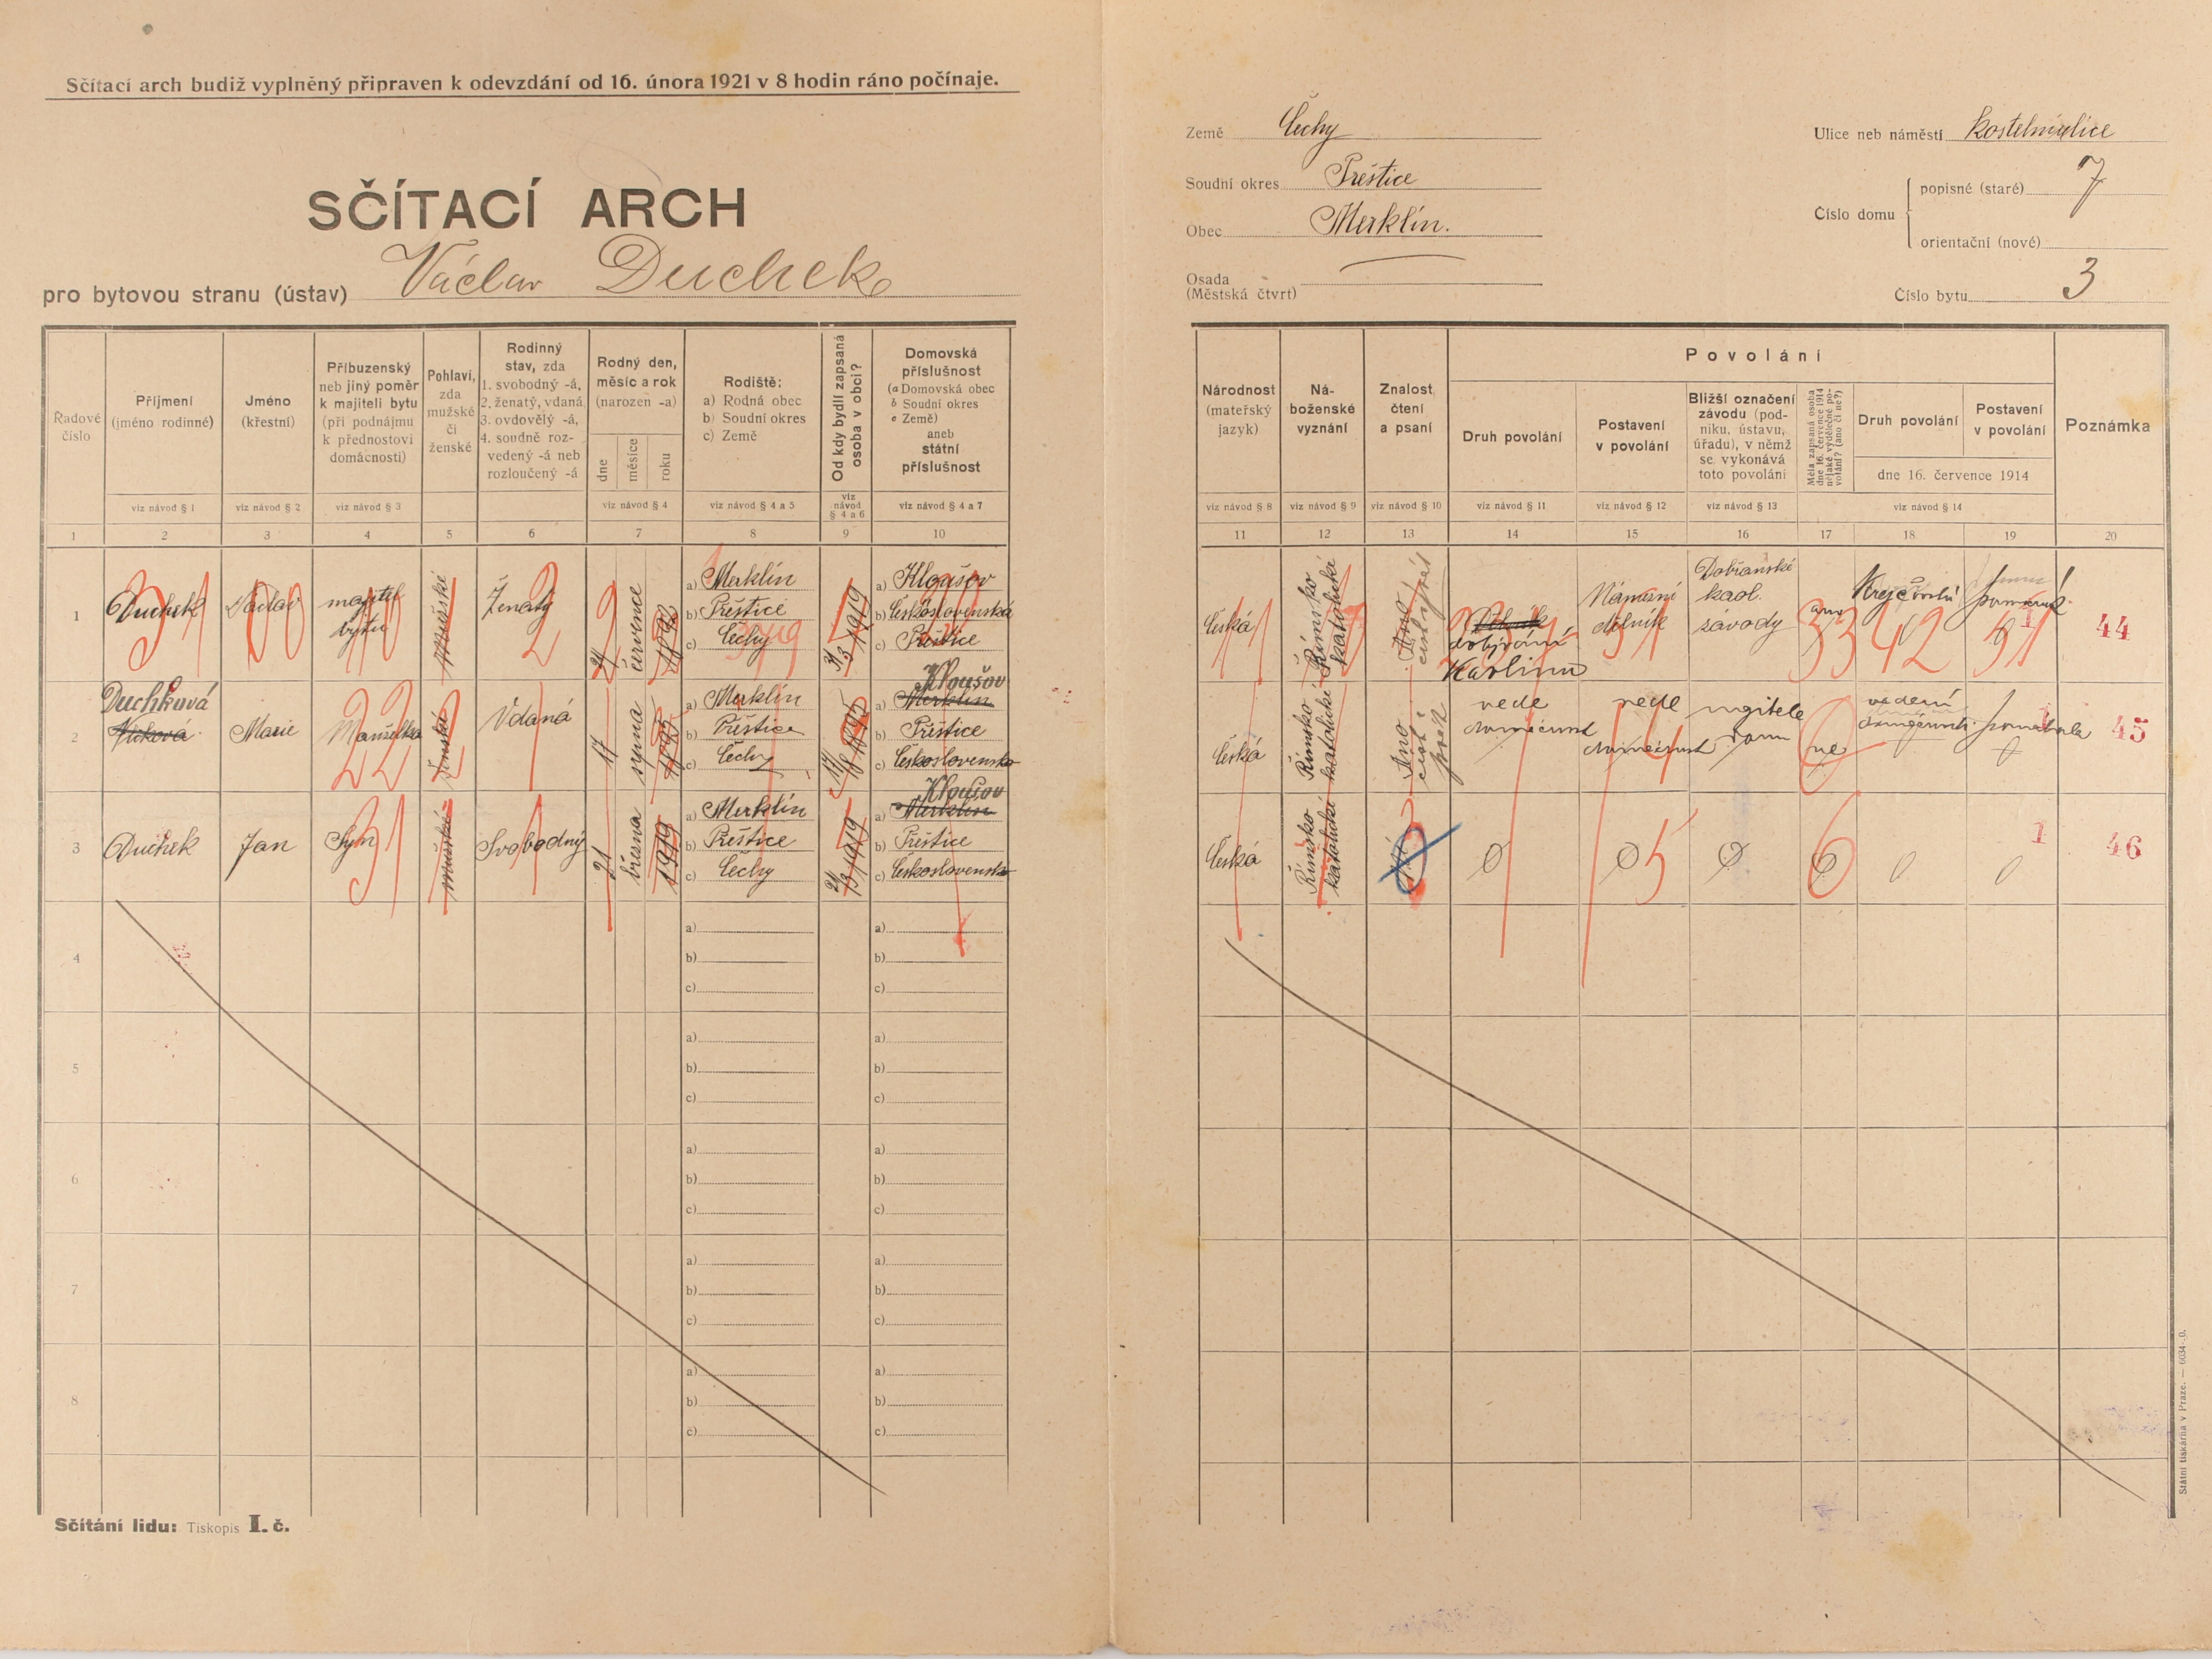 Sčítací arch budiž vyplněný připraven k odevzdání od 16. února 1921 v 8 hodin ráno počínaje.
SČÍTACÍ ARCH
pro bytovou stranu (ústav) Václav Duchek
Země Čechy
Soudní okres Přeštice
Obec Merklín.
Osada
(Městská čtvrt)
Ulice neb náměstí
Číslo domu
popisné (staré) 7
orientační (nové)
Číslo bytu 3
Řadové číslo
Příjmení (jméno rodinné)
Jméno (křestní)
Příbuzenský neb jiný poměr k majiteli bytu (při podnájmu k přednostovi domácnosti)
Pohlaví, zda mužské či ženské
Rodinný stav, zda
1. svobodný -á,
2. ženatý, vdaná
3. ovdovělý -á,
4. soudně rozvedený -á neb rozloučený -á
Rodný den, měsíc a rok (narozen -a)
dne
měsíce
roku
Rodiště:
a) Rodná obec
b) Soudní okres
c) Země
Od kdy bydlí zapsaná osoba v obci?
Domovská příslušnost
(a Domovská obec
b Soudní okres
c Země)
aneb
státní
příslušnost
viz návod § 1
viz návod § 2
viz návod § 3
viz návod § 4
viz návod § 4 a 5
viz návod § 4 a 6
viz návod § 4 a 7
1 2 3 4 5 6 7 8 9 10
Národnost (mateřský jazyk)
Náboženské vyznání
Znalost čtení a psaní
Povolání
Druh povolání
Postavení v povolání
Bližší označení závodu (podniku, ústavu, úřadu), v němž se vykonává toto povolání
Měla zapsaná osoba dne 16. července 1914 nějaké výdělečné povolání? (ano či ne?)
Druh povolání
Postavení v povolání
dne 16. července 1914
Poznámka
viz návod § 8
viz návod § 9
viz návod § 10
viz návod § 11
viz návod § 12
viz návod § 13
viz návod § 14
11 12 13 14 15 16 17 18 19 20
1
Duchek
Václav
majitel
bytu
Mužské
Ženatý
24
července
a) Merklín
b) Přeštice
c) Čechy
a) Kloušov
b) Československá
c) Přeštice
Česká
Římsko
katolická
dobývání
Kaolinu
Námezní
dělník
Dobřanské
kaol.
závody
ano
44
2
Duchková
Marie
Manželka
ženské
Vdaná
17
srpna
1895
a) Merklín
b) Přeštice
c) Čechy
Kloušov
a) Merklín
b) Přeštice
c) Československo
Česká
Římsko
katolické
vede
domácnost
vede
domácnost
ne
vedení
45
3
Duchek
Jan
Syn
mužské
Svobodný
21
března
1919
a) Merklín
b) Přeštice
c) Čechy
21/3 1919
Kloušov
a) Merklín
b) Přeštice
c) Československo
Česká
Římsko
katolické
46
4
a)
b)
c)
a)
b)
c)
5
a)
b)
c)
a)
b)
c)
6
a)
b)
c)
a)
b)
c)
7
a)
b)
c)
a)
b)
c)
8
a)
b)
c)
a)
b)
c)
Sčítání lidu: Tiskopis I. č.
Státní tiskárna v Praze. — 6034-.0.